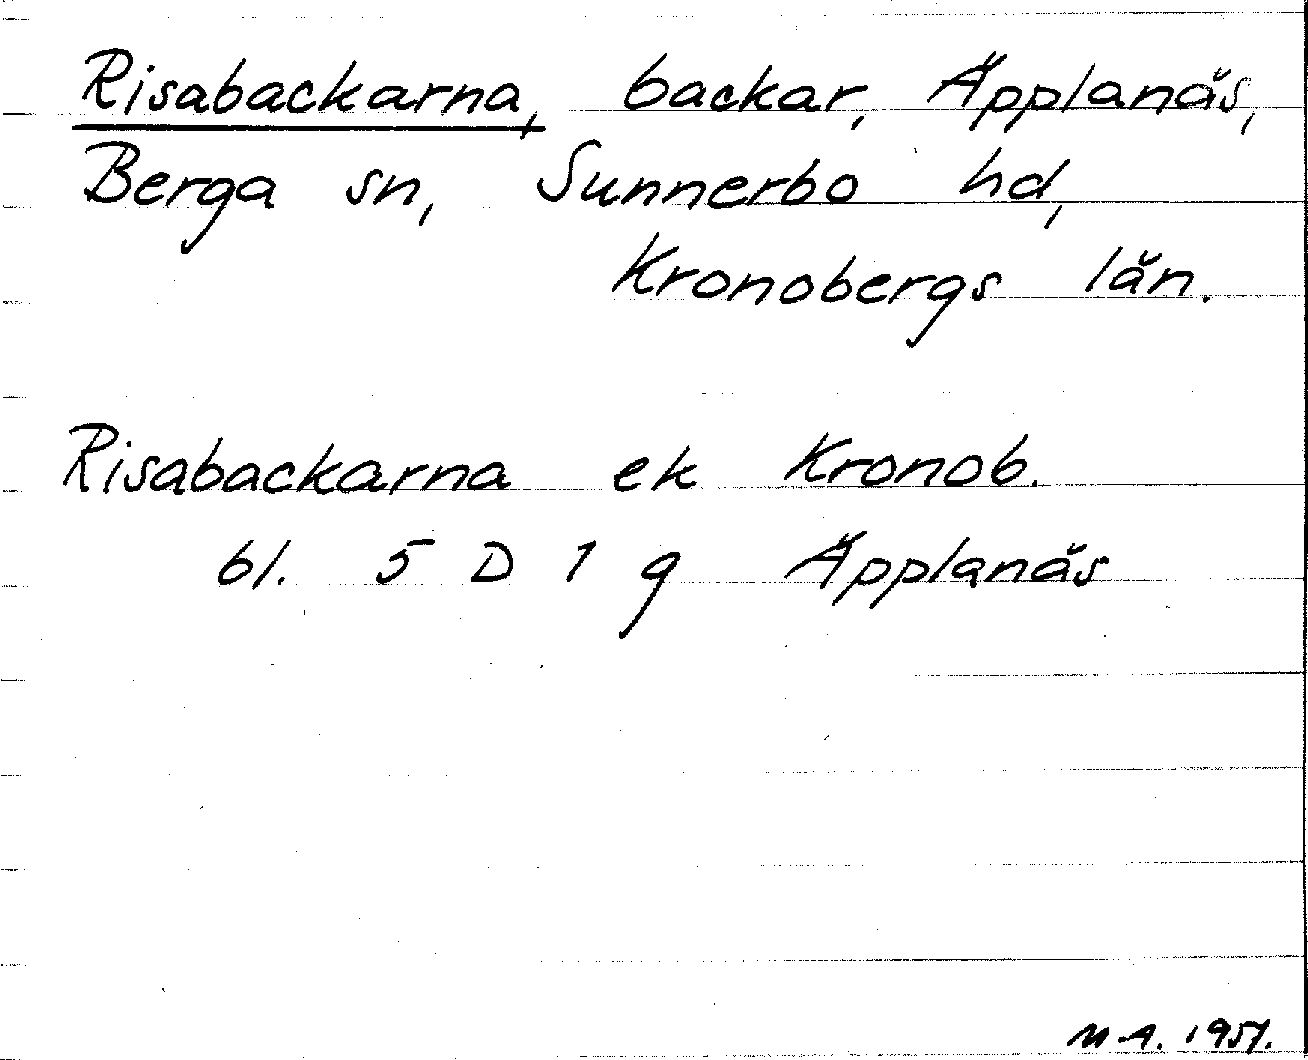 Risabackarna, backar, Äpplanäs,
Berga sn, Sunnerbo hd,
Kronobergs län.
Risabackarna ek Kronob.
bl. 5 D 1 g Äpplanäs
M.A. 1951.